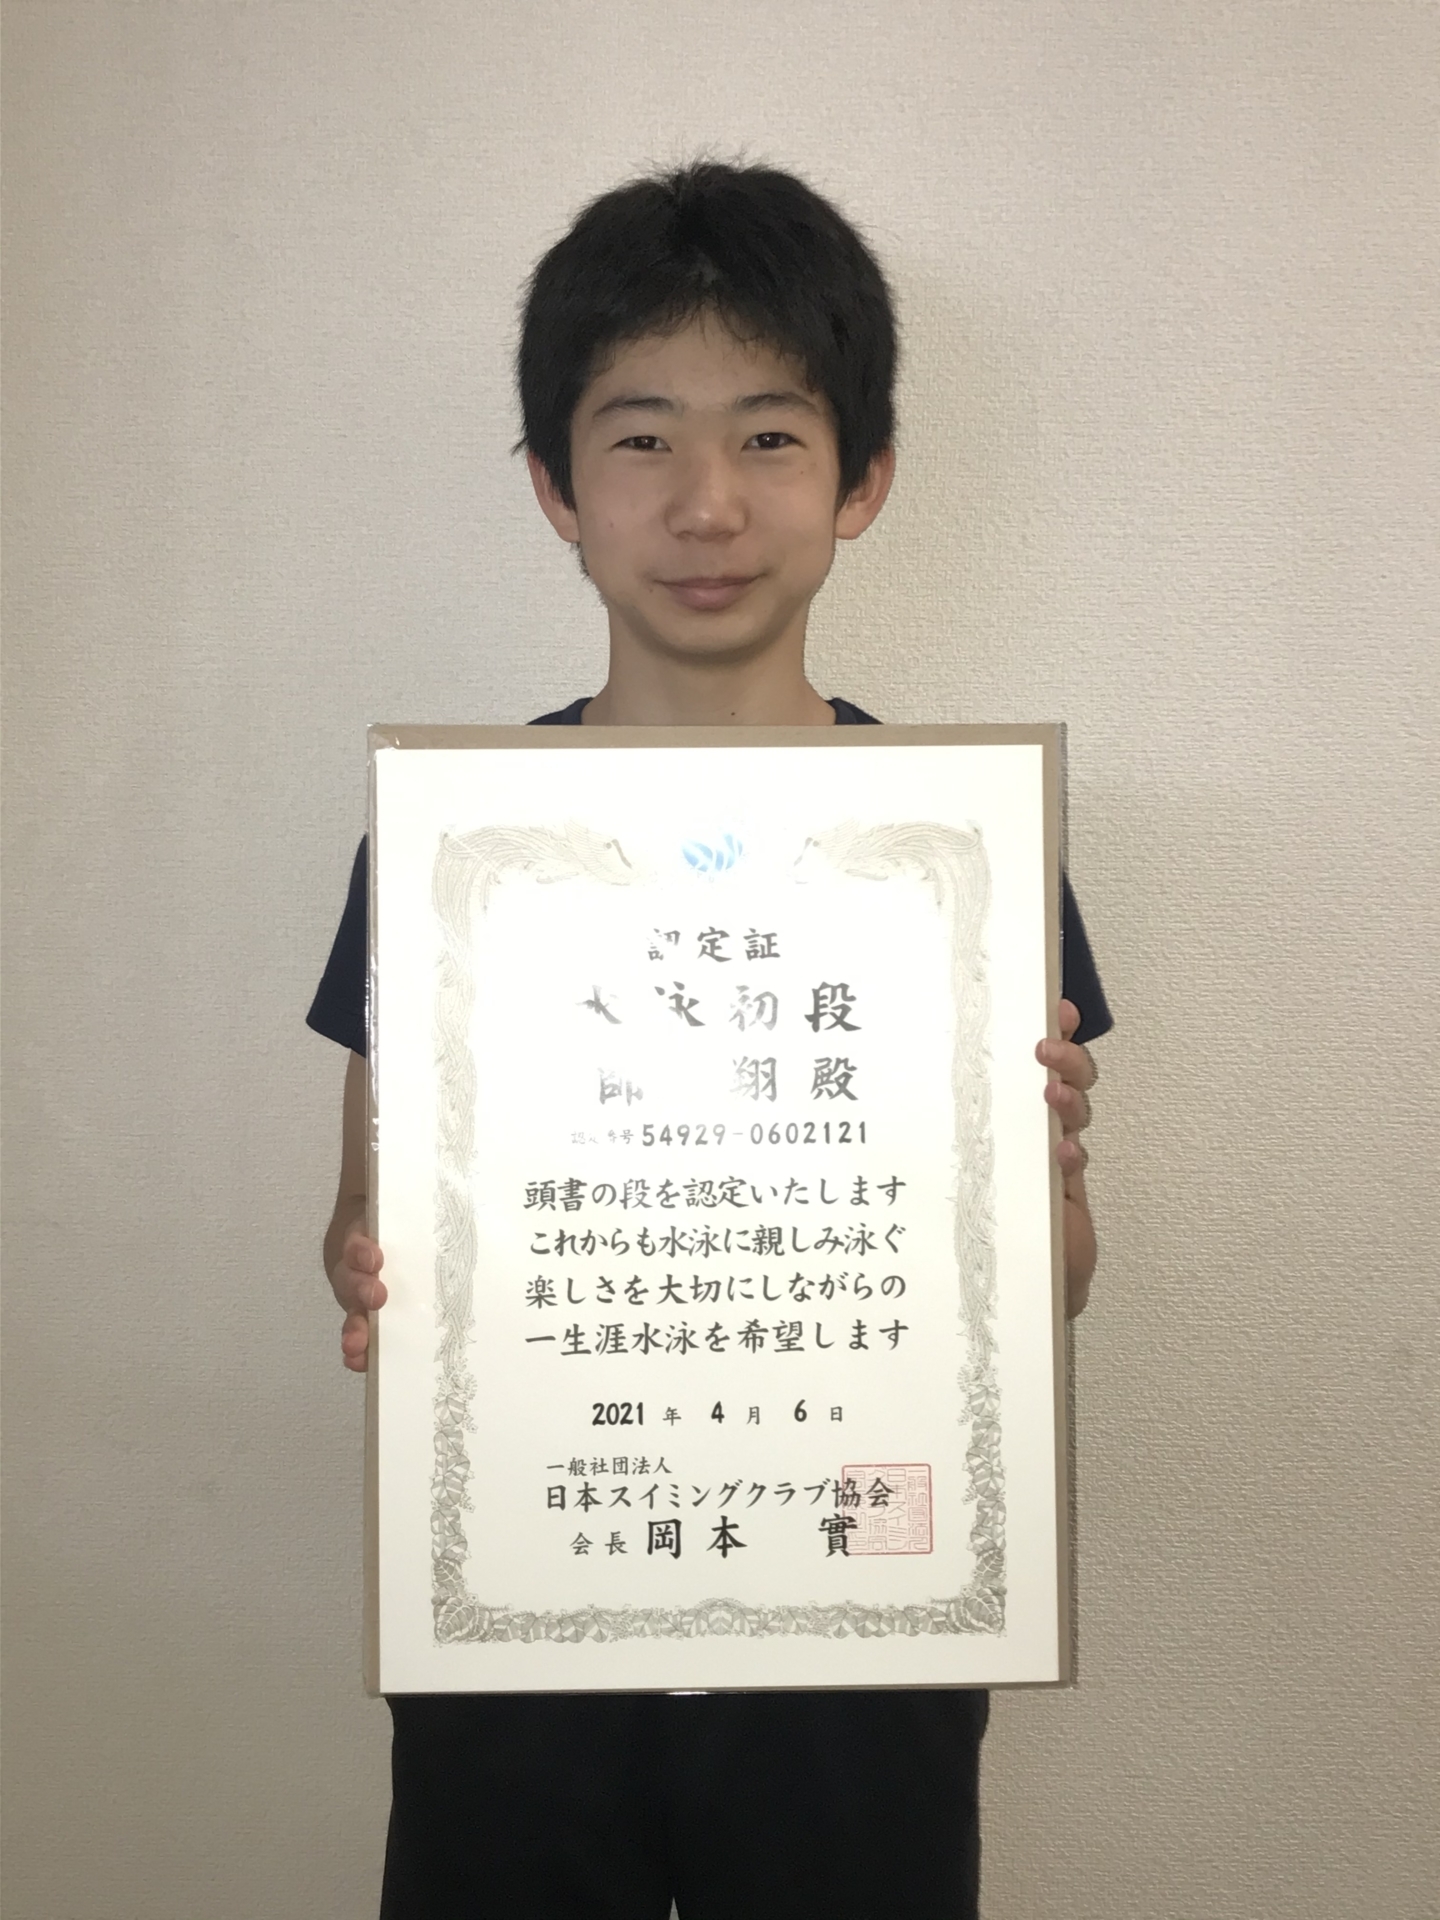 認定証
水泳初段
師 翔 殿
認定番号 54929-0602121
頭書の段を認定いたします
これからも水泳に親しみ泳ぐ
楽しさを大切にしながらの
一生涯水泳を希望します
2021 年 4 月 6 日
一般社団法人
日本スイミングクラブ協会
会長 岡本 實